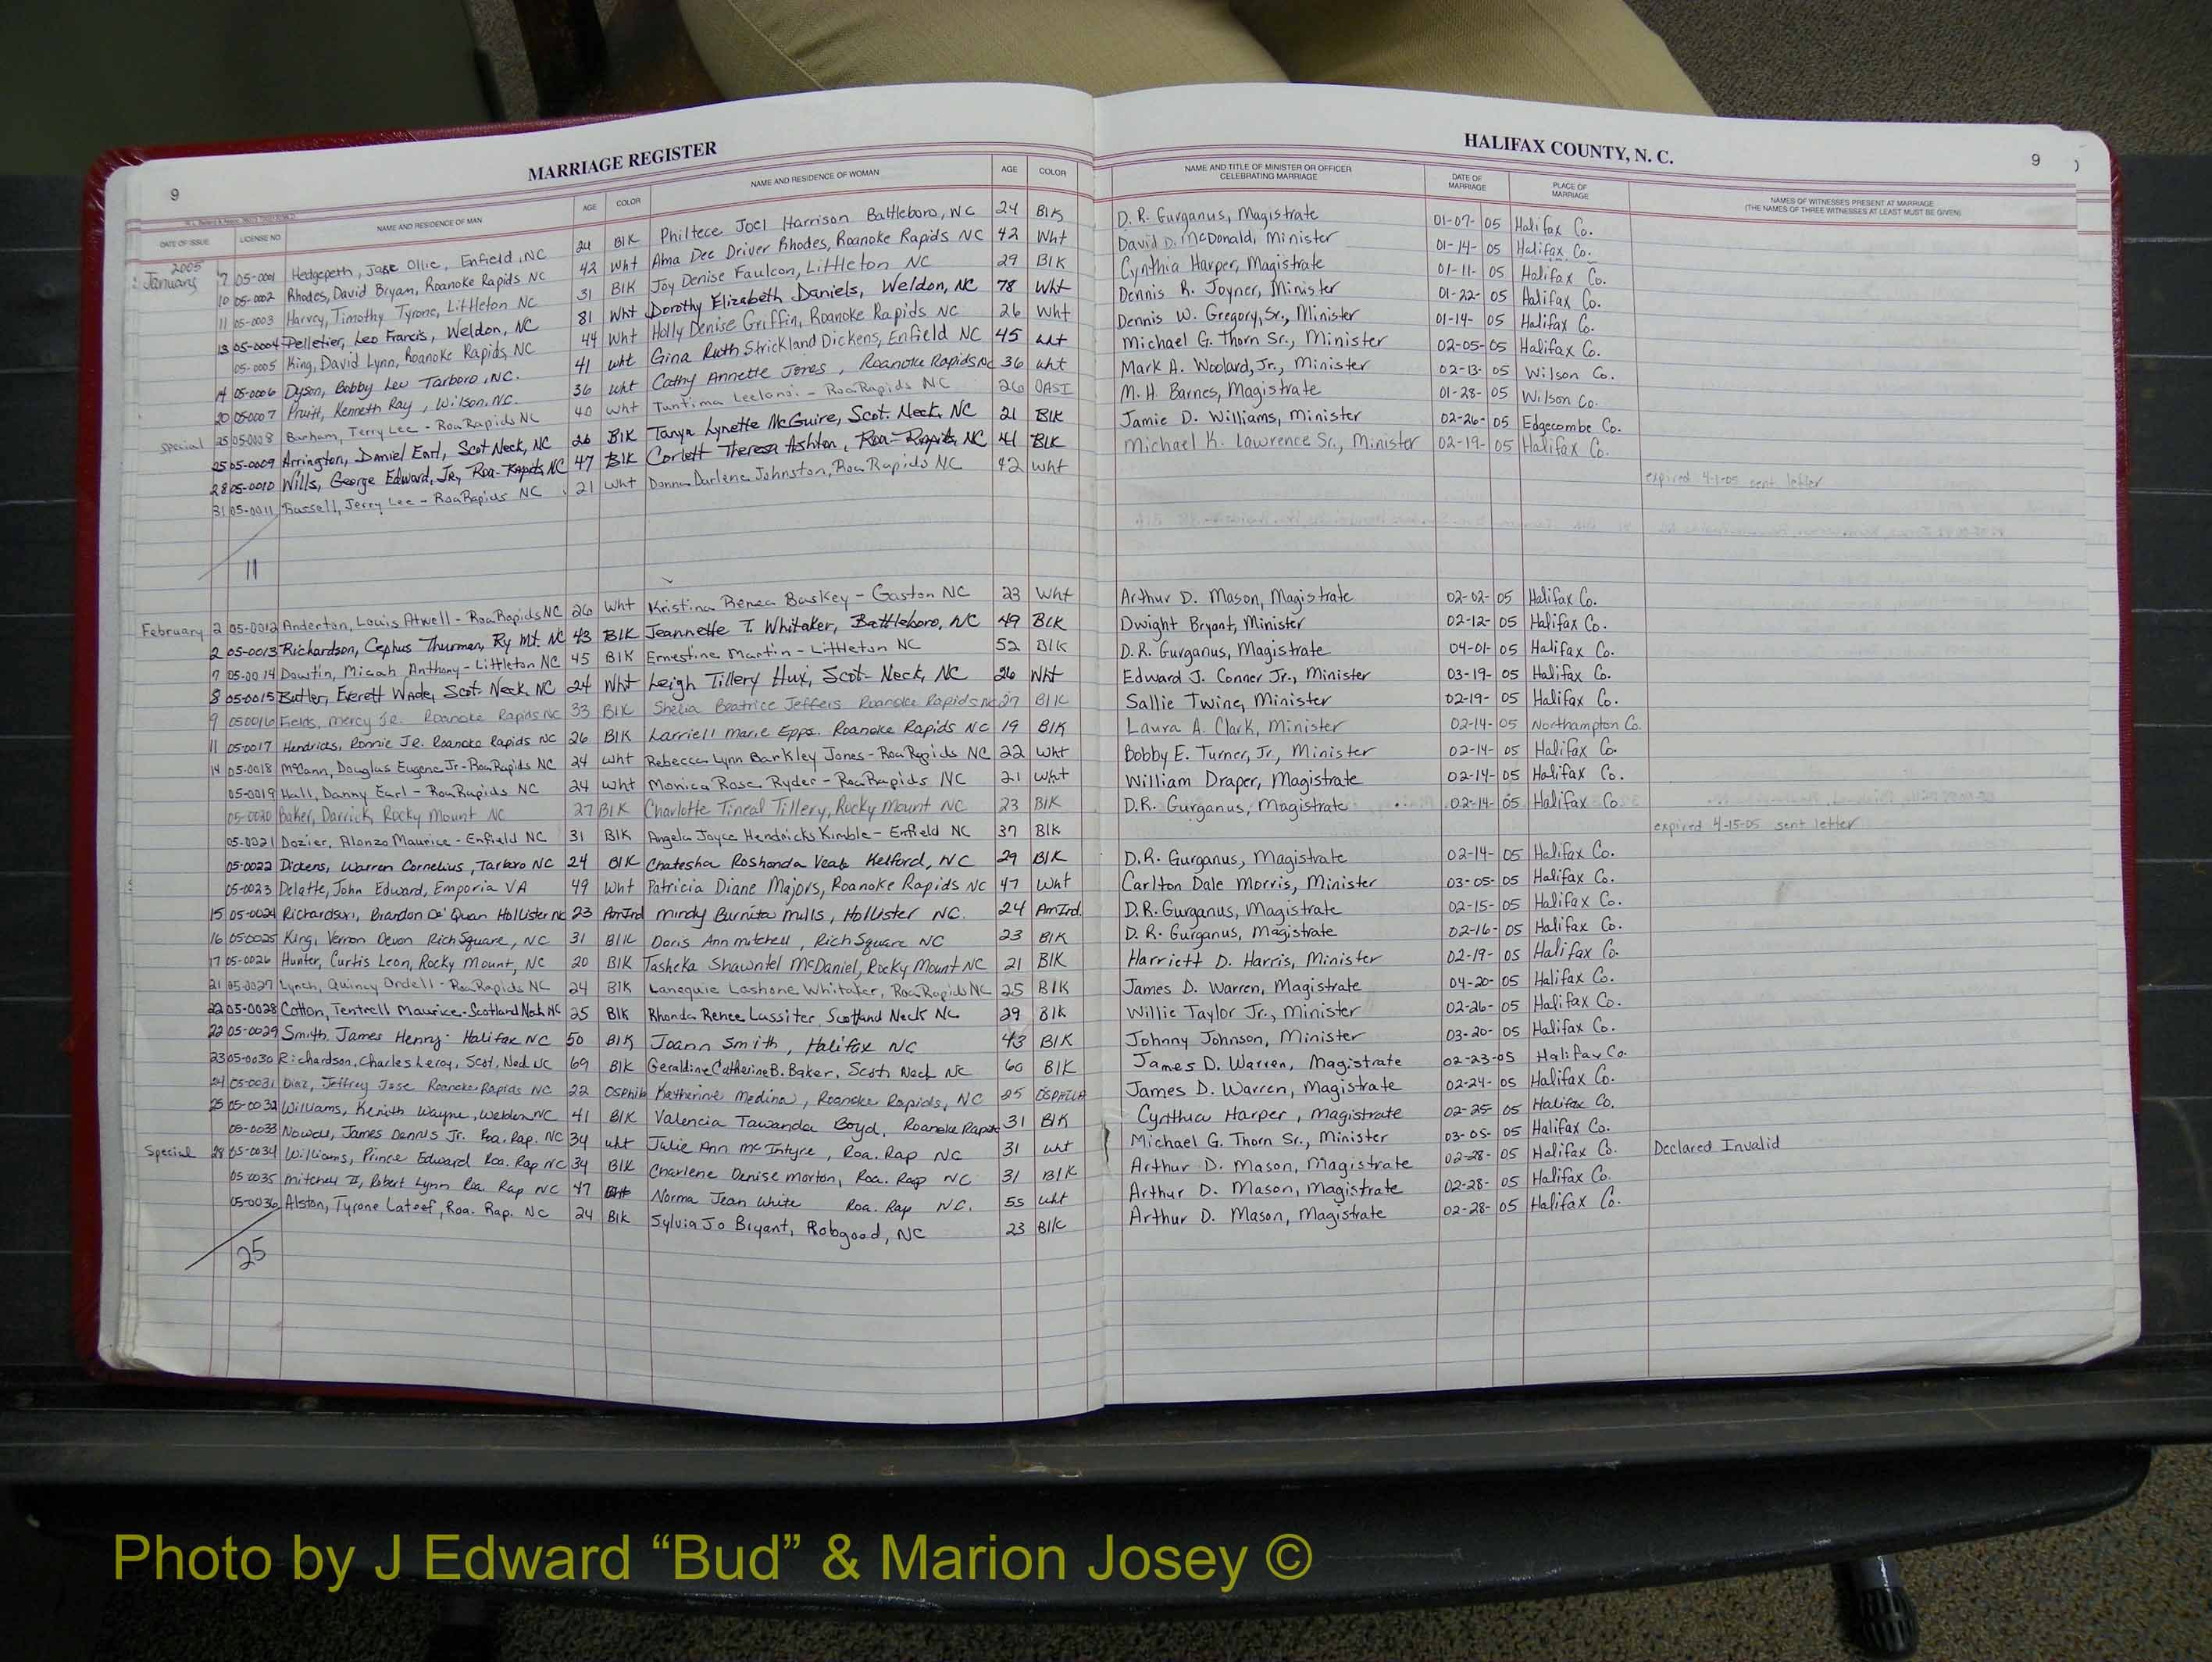 MARRIAGE REGISTER
HALIFAX COUNTY, N. C.
9
9
DATE OF ISSUE LICENSE NO NAME AND RESIDENCE OF MAN AGE COLOR NAME AND RESIDENCE OF WOMAN AGE COLOR NAME AND TITLE OF MINISTER OR OFFICER CELEBRATING MARRIAGE DATE OF MARRIAGE PLACE OF MARRIAGE NAMES OF WITNESSES PRESENT AT MARRIAGE (THE NAMES OF THREE WITNESSES AT LEAST MUST BE GIVEN)
2005
January 7 05-0001 Hedgepeth, Ollie, Enfield, NC 24 Blk Philtece Joel Harrison Battleboro, NC 24 Blk D.R. Gurganus, Magistrate 01-07-05 Halifax Co.
10 05-0002 Rhodes, David Bryam, Roanoke Rapids NC 42 Wht Alma Dee Driver Rhodes, Roanoke Rapids NC 42 Wht David D. McDonald, Minister 01-14-05 Halifax Co.
11 05-0003 Harvey, Timothy Tyrone, Littleton NC 31 Blk Joy Denise Faulcon, Littleton NC 29 Blk Cynthia Harper, Magistrate 01-11-05 Halifax Co.
13 05-0004 Pelletier, Leo Francis, Weldon, NC 81 Wht Dorothy Elizabeth Daniels, Weldon, NC 78 Wht Dennis R. Joyner, Minister 01-22-05 Halifax Co.
05-0005 King, David Lynn, Roanoke Rapids, NC 44 Wht Holly Denise Griffin, Roanoke Rapids NC 26 Wht Dennis W. Gregory, Sr., Minister 01-14-05 Halifax Co.
14 05-0006 Dyson, Bobby Leo Tarboro, NC. 41 Wht Gina Ruth Strickland Dickens, Enfield NC 45 Wht Michael G. Thorn Sr., Minister 02-05-05 Halifax Co.
20 05-0007 Pruitt, Kenneth Ray, Wilson, NC. 36 Wht Cathy Annette Jones, Roanoke Rapids NC 36 Wht Mark A. Woolard, Jr., Minister 02-13-05 Wilson Co.
Special 25 05-0008 Barham, Terry Lee - RoaRapids NC 40 Wht Tuntima - RoaRapids NC 26 OASI M. H. Barnes, Magistrate 01-28-05 Wilson Co.
25 05-0009 Arrington, Daniel Earl, Scot Neck, NC 26 Blk Tanya Lynette McGuire, Scot. Neck, NC 21 Blk Jamie D. Williams, Minister 02-26-05 Edgecombe Co.
28 05-0010 Wills, George Edward, Jr, Roa-Rapids NC 47 Blk Corlett Theresa Ashton, Roa-Rapids, NC 41 Blk Michael K. Lawrence Sr., Minister 02-19-05 Halifax Co.
31 05-0011 Russell, Jerry Lee - RoaRapids NC 21 Wht Donna Darlene Johnston, RoaRapids NC 42 Wht expired 4-1-05 sent letter
11
February 2 05-0012 Anderton, Louis Atwell - RoaRapids NC 26 Wht Kristina Renea Baskey - Gaston NC 23 Wht Arthur D. Mason, Magistrate 02-02-05 Halifax Co.
2 05-0013 Richardson, Cephus Thurman, Ry Mt. NC 43 Blk Jeannette T. Whitaker, Battleboro, NC 49 Blk Dwight Bryant, Minister 02-12-05 Halifax Co.
7 05-0014 Dowtin, Micah Anthony - Littleton NC 45 Blk Ernestine Martin - Littleton NC 52 Blk D.R. Gurganus, Magistrate 04-01-05 Halifax Co.
8 05-0015 Butler, Everett Wade, Scot. Neck, NC 24 Wht Leigh Tillery Hux, Scot- Neck, NC 26 Wht Edward J. Conner Jr., Minister 03-19-05 Halifax Co.
9 05-0016 Fields, Mercy Jr. Roanoke Rapids NC 33 Blk Shelia Beatrice Jeffers Roanoke Rapids NC 27 Blk Sallie Twine, Minister 02-19-05 Halifax Co.
11 05-0017 Hendricks, Ronnie Jr. Roanoke Rapids NC 26 Blk Larriell Marie Epps. Roanoke Rapids NC 19 Blk Laura A. Clark, Minister 02-14-05 Northampton Co.
14 05-0018 McCann, Douglas Eugene Jr - RoaRapids NC 24 Wht Rebecca Lynn Barkley Jones - RoaRapids NC 22 Wht Bobby E. Turner, Jr., Minister 02-14-05 Halifax Co.
05-0019 Hall, Danny Earl - RoaRapids NC 24 Wht Monica Rose Ryder - RoaRapids NC 21 Wht William Draper, Magistrate 02-14-05 Halifax Co.
05-0020 Baker, Darrick Rocky Mount NC 27 Blk Charlotte Tineal Tillery, Rocky Mount NC 23 Blk D.R. Gurganus, Magistrate 02-14-05 Halifax Co
05-0021 Dozier, Alonzo Maurice - Enfield NC 31 Blk Angela Joyce Hendricks Kimble - Enfield NC 37 Blk expired 4-15-05 sent letter
05-0022 Dickens, Warren Cornelius, Tarboro NC 24 Blk Chatesha Roshonda Kelford, NC 29 Blk D.R. Gurganus, Magistrate 02-14-05 Halifax Co.
05-0023 Delatte, John Edward, Emporia VA 49 Wht Patricia Diane Majors, Roanoke Rapids NC 47 Wht Carlton Dale Morris, Minister 03-05-05 Halifax Co.
15 05-0024 Richardson, Brandon De'Quan Hollister NC 23 AmInd Mindy Burnita Mills, Hollister NC. 24 AmInd. D.R. Gurganus, Magistrate 02-15-05 Halifax Co.
16 05-0025 King, Vernon Devon Rich Square, NC 31 Blk Doris Ann Mitchell, Rich Square NC 23 Blk D. R. Gurganus, Magistrate 02-16-05 Halifax Co.
17 05-0026 Hunter, Curtis Leon, Rocky Mount, NC 20 Blk Tasheka Shawntel McDaniel, Rocky Mount NC 21 Blk Harriett D. Harris, Minister 02-19-05 Halifax Co.
21 05-0027 Lynch, Quincy Ordell - RoaRapids NC 24 Blk Lanequie Lashone Whitaker, RoaRapids NC 25 Blk James D. Warren, Magistrate 04-20-05 Halifax Co.
22 05-0028 Cotton, Tentrell Maurice - Scotland Neck NC 25 Blk Rhonda Renee Lassiter Scotland Neck NC 29 Blk Willie Taylor Jr., Minister 02-26-05 Halifax Co.
22 05-0029 Smith, James Henry - Halifax NC 50 Blk Joann Smith, Halifax NC 43 Blk Johnny Johnson, Minister 03-20-05 Halifax Co.
23 05-0030 Richardson, Charles Leroy, Scot. Neck NC 69 Blk Geraldine Catherine B. Baker, Scot. Neck NC 60 Blk James D. Warren, Magistrate 02-23-05 Halifax Co.
24 05-0031 Diaz, Jeffrey Jose Roanoke Rapids NC 22 Katherine Medina, Roanoke Rapids, NC 25 James D. Warren, Magistrate 02-24-05 Halifax Co.
25 05-0032 Williams, Kenith Wayne, Weldon NC 41 Blk Valencia Tawanda Boyd, Roanoke Rapids 31 Blk Cynthia Harper, Magistrate 02-25-05 Halifax Co.
05-0033 Nowell, James Dennis Jr. Roa. Rap. NC 34 Wht Julie Ann McIntyre, Roa. Rap NC 31 Wht Michael G. Thorn Sr., Minister 03-05-05 Halifax Co.
Special 28 05-0034 Williams, Prince Edward Roa. Rap NC 34 Blk Charlene Denise Morton, Roa. Rap NC 31 Blk Arthur D. Mason, Magistrate 02-28-05 Halifax Co. Declared Invalid
05-0035 Mitchell II, Robert Lynn Roa. Rap NC 47 Norma Jean White Roa. Rap NC. 55 Wht Arthur D. Mason, Magistrate 02-28-05 Halifax Co.
05-0036 Alston, Tyrone Lateef, Roa. Rap. NC 24 Blk Sylvia Jo Bryant, Hobgood, NC 23 Blk Arthur D. Mason, Magistrate 02-28-05 Halifax Co.
25
Photo by J Edward “Bud” & Marion Josey ©